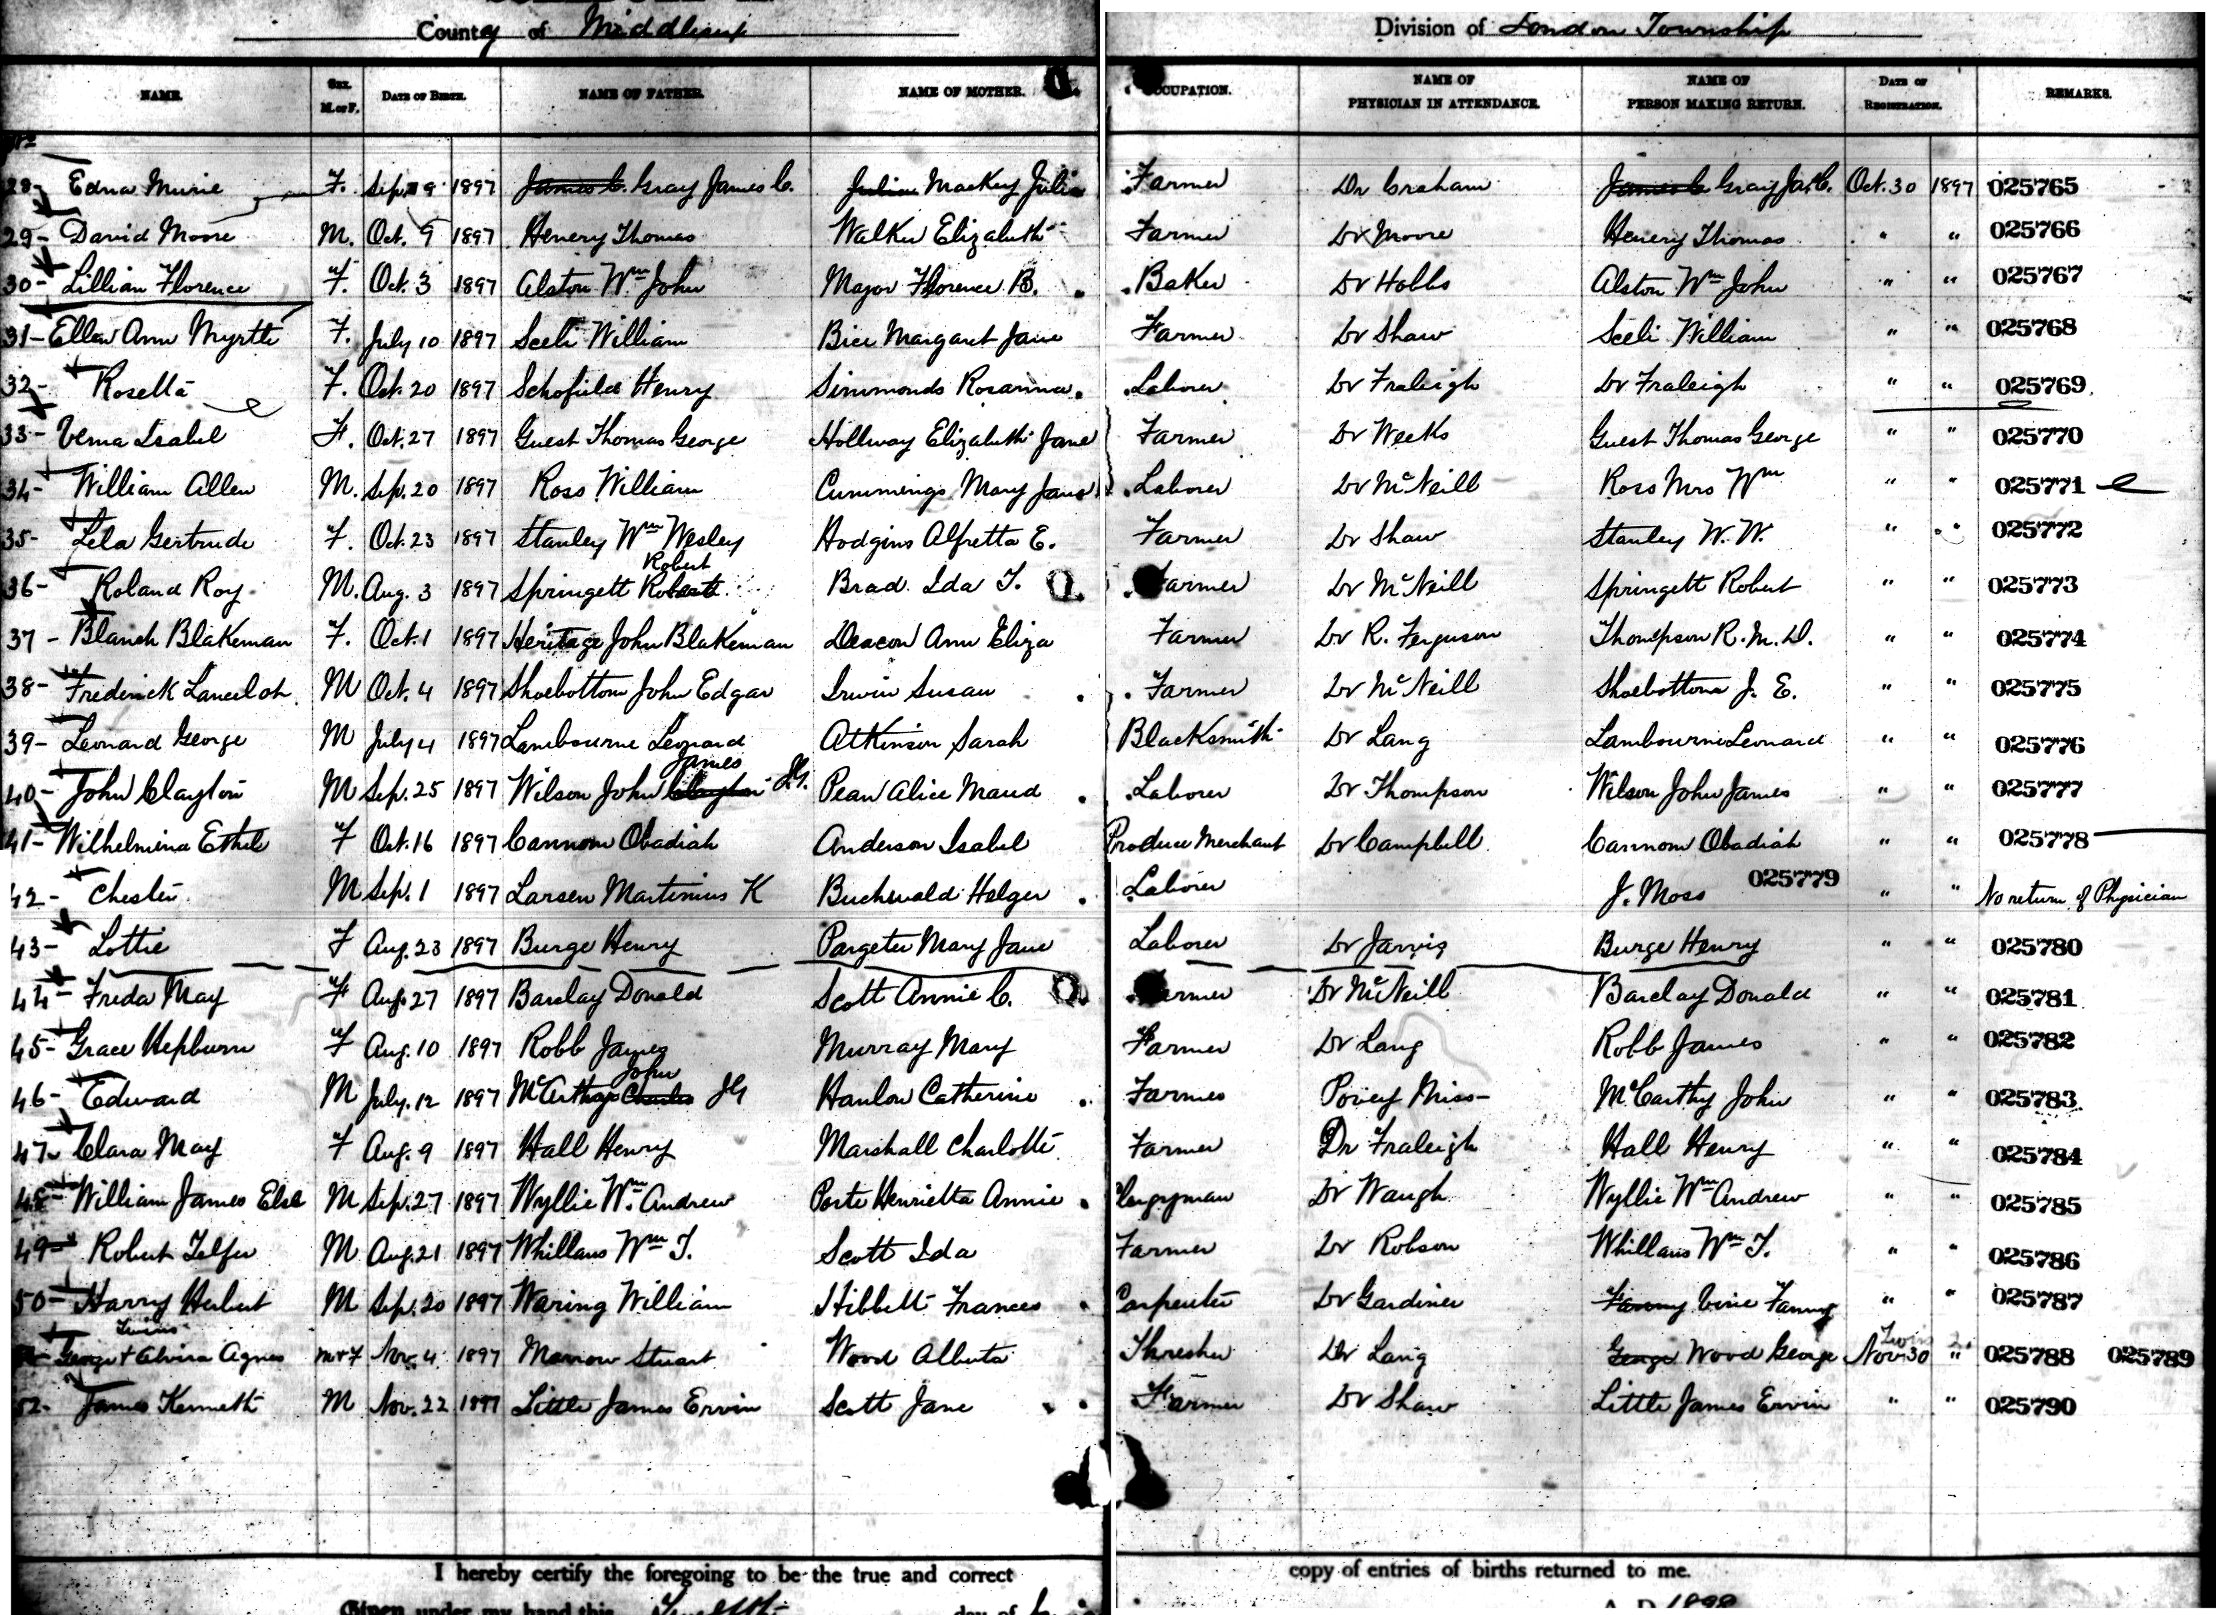 County of Middlesex Division of London Township
NAME. SEX. M. or F. DATE OF BIRTH. NAME OF FATHER. NAME OF MOTHER. OCCUPATION. NAME OF PHYSICIAN IN ATTENDANCE. NAME OF PERSON MAKING RETURN. DATE OF REGISTRATION. REMARKS.
28- Edna Murie F. Sep. 9 1897 James C. Gray James C. Julia Mackey Julia Farmer Dr Graham James C. Gray Jas C. Oct. 30 1897 025765
29- David Moore M. Oct. 9 1897 Henery Thomas Walker Elizabeth Farmer Dr Moore Henery Thomas " " 025766
30- Lillian Florence F. Oct. 3 1897 Alston Wm John Major Florence B. Baker Dr Hobbs Alston Wm John " " 025767
31- Ellen Ann Myrtle F. July 10 1897 Sceli William Bice Margaret Jane Farmer Dr Shaw Sceli William " " 025768
32- Rosella F. Oct. 20 1897 Schofield Henry Simmonds Rosanna Laborer Dr Fraleigh Dr Fraleigh " " 025769
33- Verna Isabel F. Oct. 27 1897 Guest Thomas George Hollway Elizabeth Jane Farmer Dr Weeks Guest Thomas George " " 025770
34- William Allen M. Sep. 20 1897 Ross William Cummings Mary Jane Laborer Dr McNeill Ross Mrs Wm " " 025771
35- Lela Gertrude F. Oct. 23 1897 Stanley Wm Wesley Hodgins Alfretta E. Farmer Dr Shaw Stanley W. W. " " 025772
Robert
36- Roland Roy M. Aug. 3 1897 Springett Robert Brad Ida T. Farmer Dr McNeill Springett Robert " " 025773
37- Blanch Blakeman F. Oct. 1 1897 Heritage John Blakeman Deacon Ann Eliza Farmer Dr R. Ferguson Thompson R. M. D. " " 025774
38- Frederick Lancelot M Oct. 4 1897 Shoebottom John Edgar Irwin Susan Farmer Dr McNeill Shoebottom J. E. " " 025775
39- Leonard George M July 4 1897 Lambourne Leonard Atkinson Sarah Blacksmith Dr Lang Lambourne Leonard " " 025776
James
40- John Clayton M Sep. 25 1897 Wilson John Clayton Pean Alice Maud Laborer Dr Thompson Wilson John James " " 025777
41- Wilhelmina Ethel F Oct. 16 1897 Cannom Obadiah Anderson Isabel Produce Merchant Dr Campbell Cannom Obadiah " " 025778
42- Chester M Sep. 1 1897 Larsen Martinius K Buchwald Helger Laborer J. Moss 025779 " " No return of Physician
43- Lottie F Aug. 23 1897 Burge Henry Pargeter Mary Jane Laborer Dr Jarvis Burge Henry " " 025780
44- Freda May F Aug. 27 1897 Barclay Donald Scott Annie C. Farmer Dr McNeill Barclay Donald " " 025781
45- Grace Hepburn F Aug. 10 1897 Robb James Murray Mary Farmer Dr Lang Robb James " " 025782
John
46- Edward M July. 12 1897 McCarthy Charles Hanlon Catherine Farmer Povey Miss- McCarthy John " " 025783
47- Clara May F Aug. 9 1897 Hall Henry Marshall Charlotte Farmer Dr Fraleigh Hall Henry " " 025784
48- William James Else M Sep. 27 1897 Wyllie Wm. Andrew Porte Henrietta Annie Clergyman Dr Waugh Wyllie Wm Andrew " " 025785
49- Robert Telfer M Aug. 21 1897 Whillans Wm T. Scott Ida Farmer Dr Robson Whillans Wm T. " " 025786
50- Harry Herbert M Sep. 20 1897 Waring William Hibbett Frances Carpenter Dr Gardiner Fanny Vine Fanny " " 025787
Twins Twins
George + Alvira Agnes m+F Nov. 4 1897 Morrow Stuart Wood Alberta Thresher Dr Lang George Wood George Nov 30 " 025788 025789
52- James Kenneth M Nov. 22 1897 Little James Ervin Scott Jane Farmer Dr Shaw Little James Ervin " " 025790
I hereby certify the foregoing to be the true and correct copy of entries of births returned to me.
Given under my hand this Twelfth day of A. D. 1898